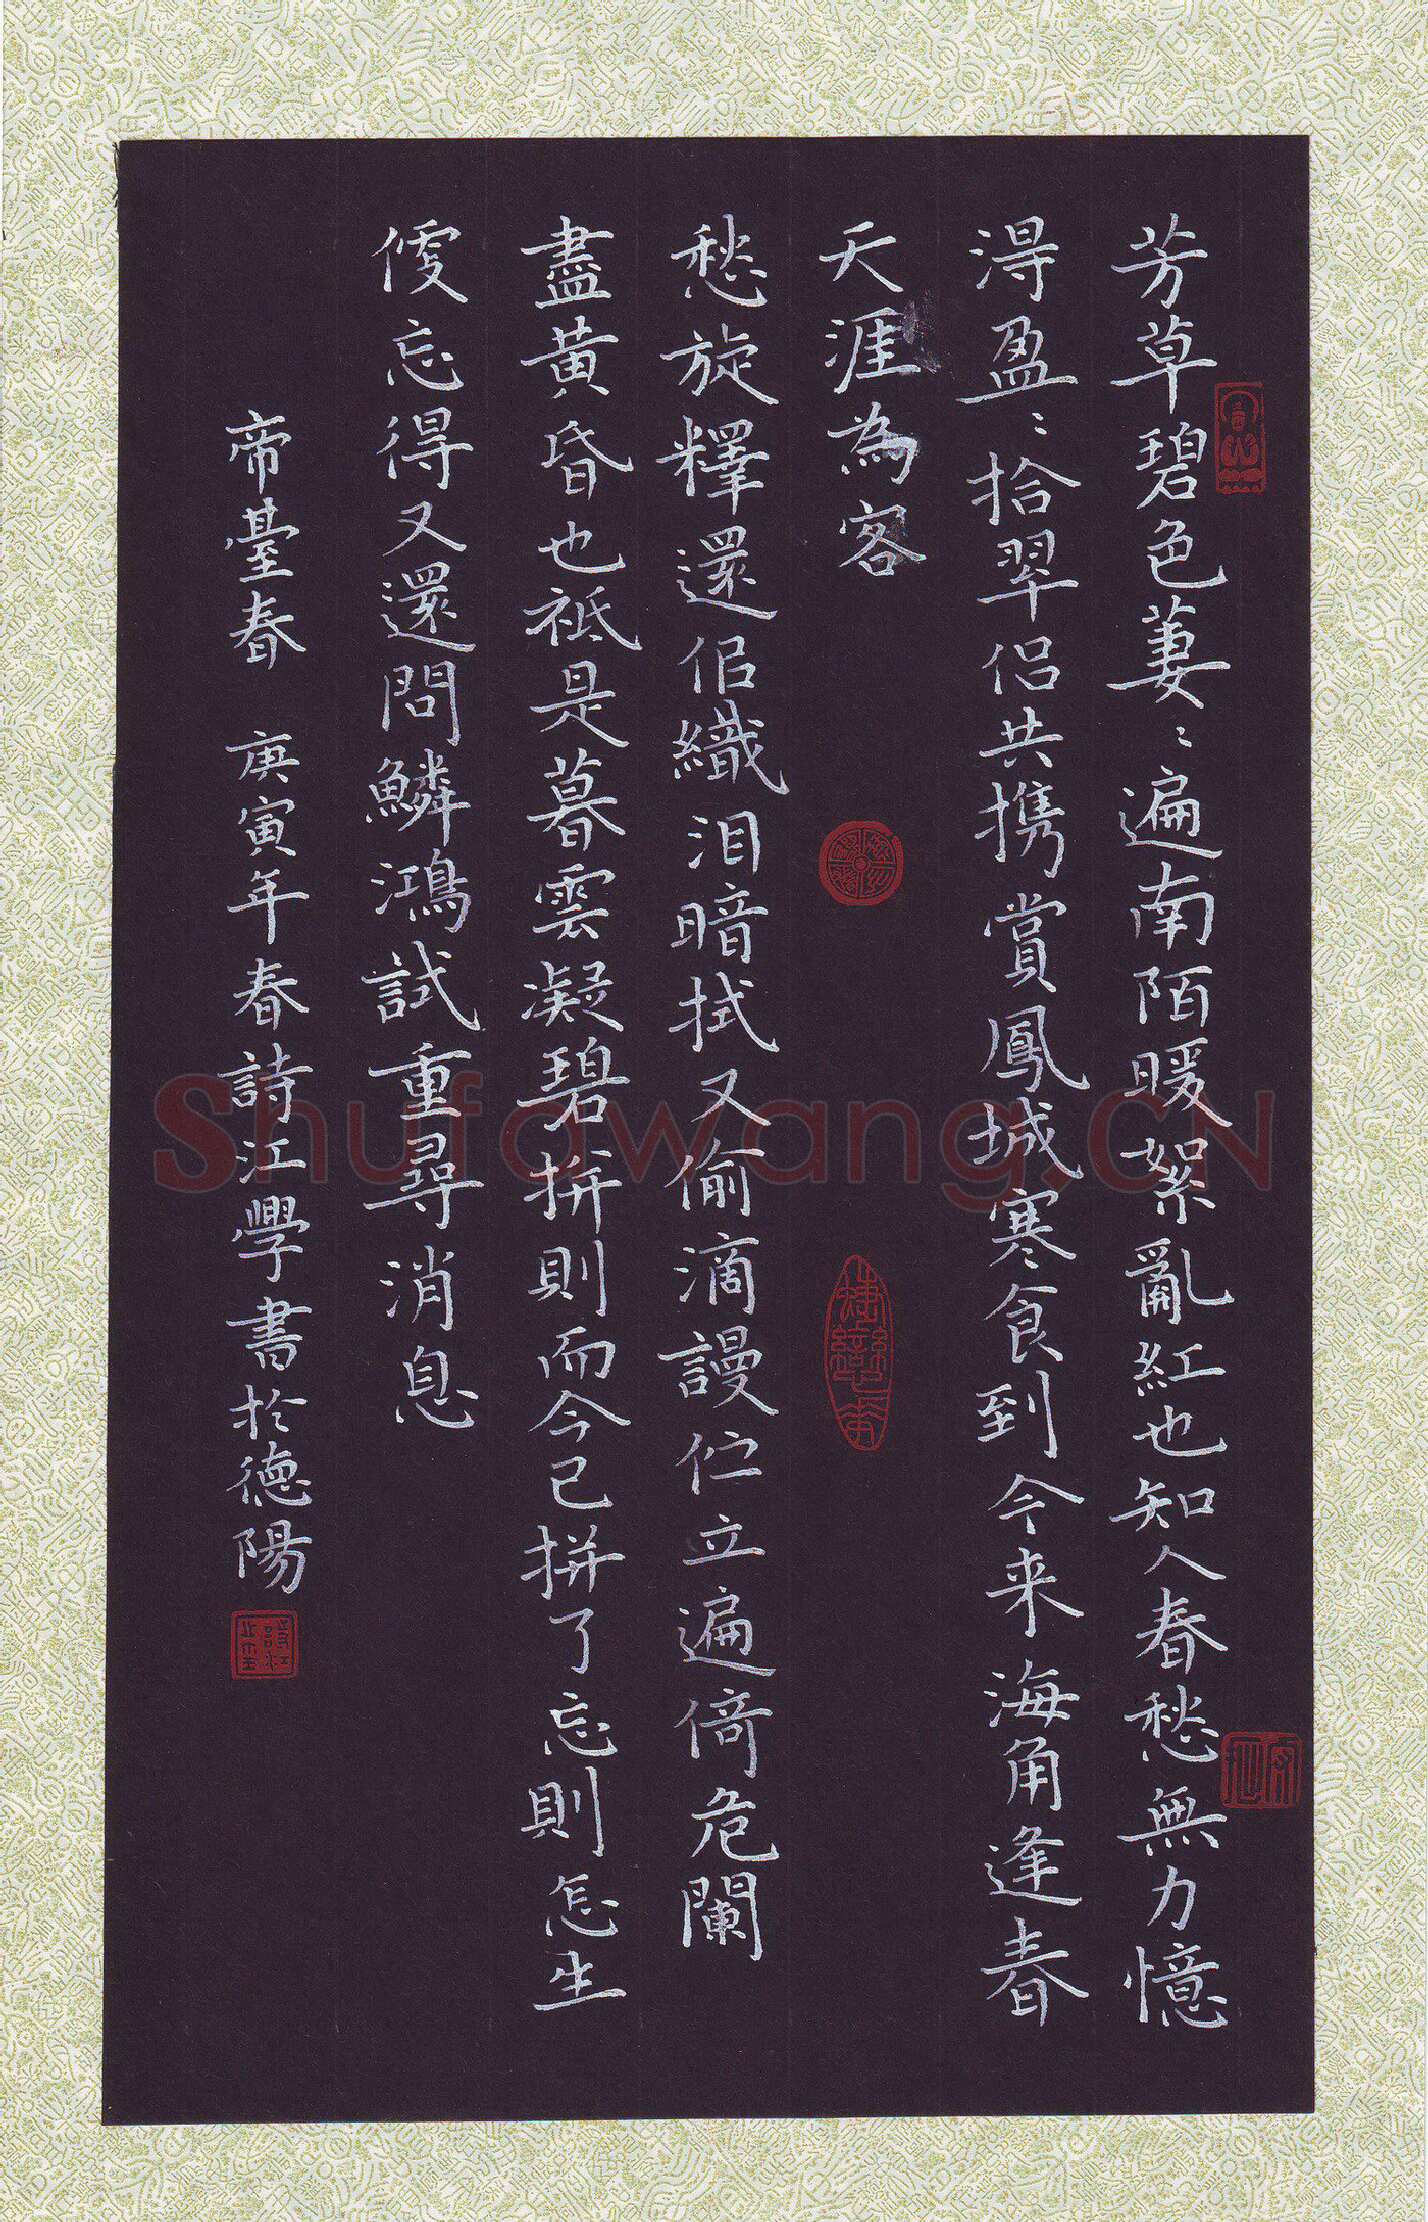 芳草碧色萋〻遍南陌暖絮亂紅也知人春愁無力憶
得盈〻拾翠侶共携賞鳳城寒食到今来海角逢春
天涯為客
愁旋釋還佀織泪暗拭又偷滴謾伫立遍倚危闌
盡黄昏也祗是暮雲凝碧拚則而今已拼了忘則怎生
便忘得又還問鱗鴻試重尋消息
帝臺春 庚寅年春詩江學書於德陽
Shufawang.CN